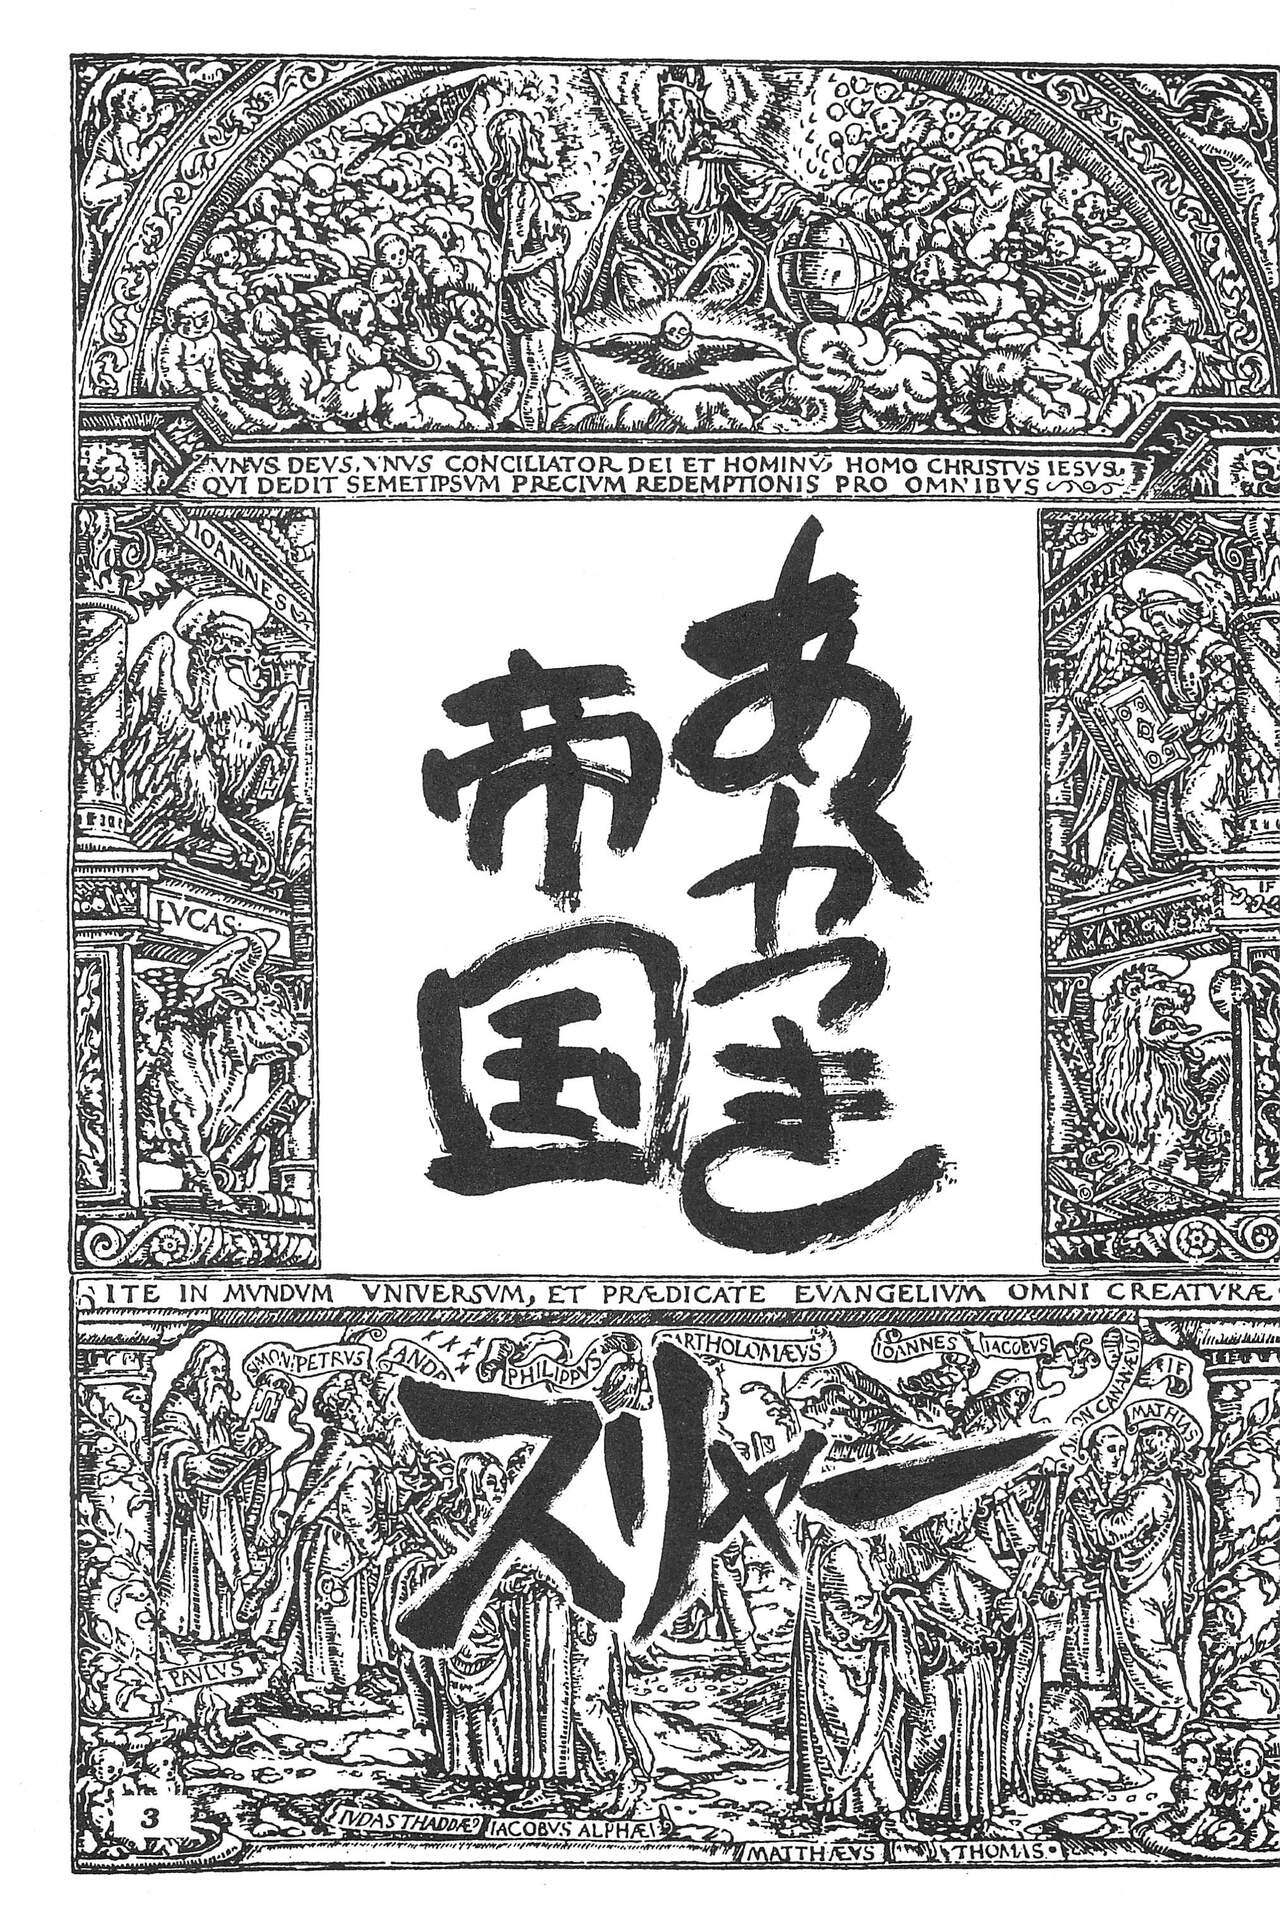 VNVS DEVS, VNVS CONCILIATOR DEI ET HOMINV̄ HOMO CHRISTVS IESVS.
QVI DEDIT SEMETIPSVM PRECIVM REDEMPTIONIS PRO OMNIBVS
あかつき
帝国
IOANNES
LVCAS
MARCVS
IF
ITE IN MVNDVM VNIVERSVM, ET PRÆDICATE EVANGELIVM OMNI CREATVRÆ
SIMON PETRVS
ANDR
PHILIPPVS
BARTHOLOMÆVS
IOANNES IACOBVS
ON CANANÆVS
IF
MATHIAS
スリャー
PAVLVS
3
IVDAS THADDÆ9 IACOBVS ALPHÆI
MATTHÆVS THOMIS